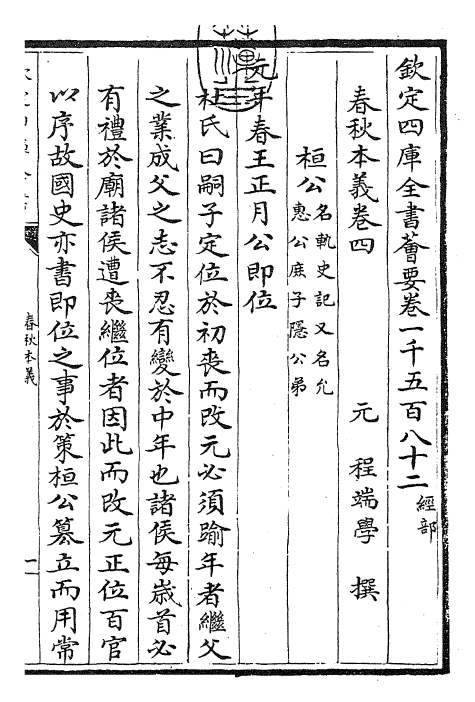 欽定四庫全書薈要卷一千五百八十二 經部
春秋本義卷四 元 程端學 撰
桓公 名軌史記又名允
惠公庶子隱公弟
元年春王正月公即位
杜氏曰嗣子定位於初喪而改元必須踰年者繼父
之業成父之志不忍有變於中年也諸侯每歲首必
有禮於廟諸侯遭喪繼位者因此而改元正位百官
以序故國史亦書即位之事於策桓公簒立而用常
春秋本義
一